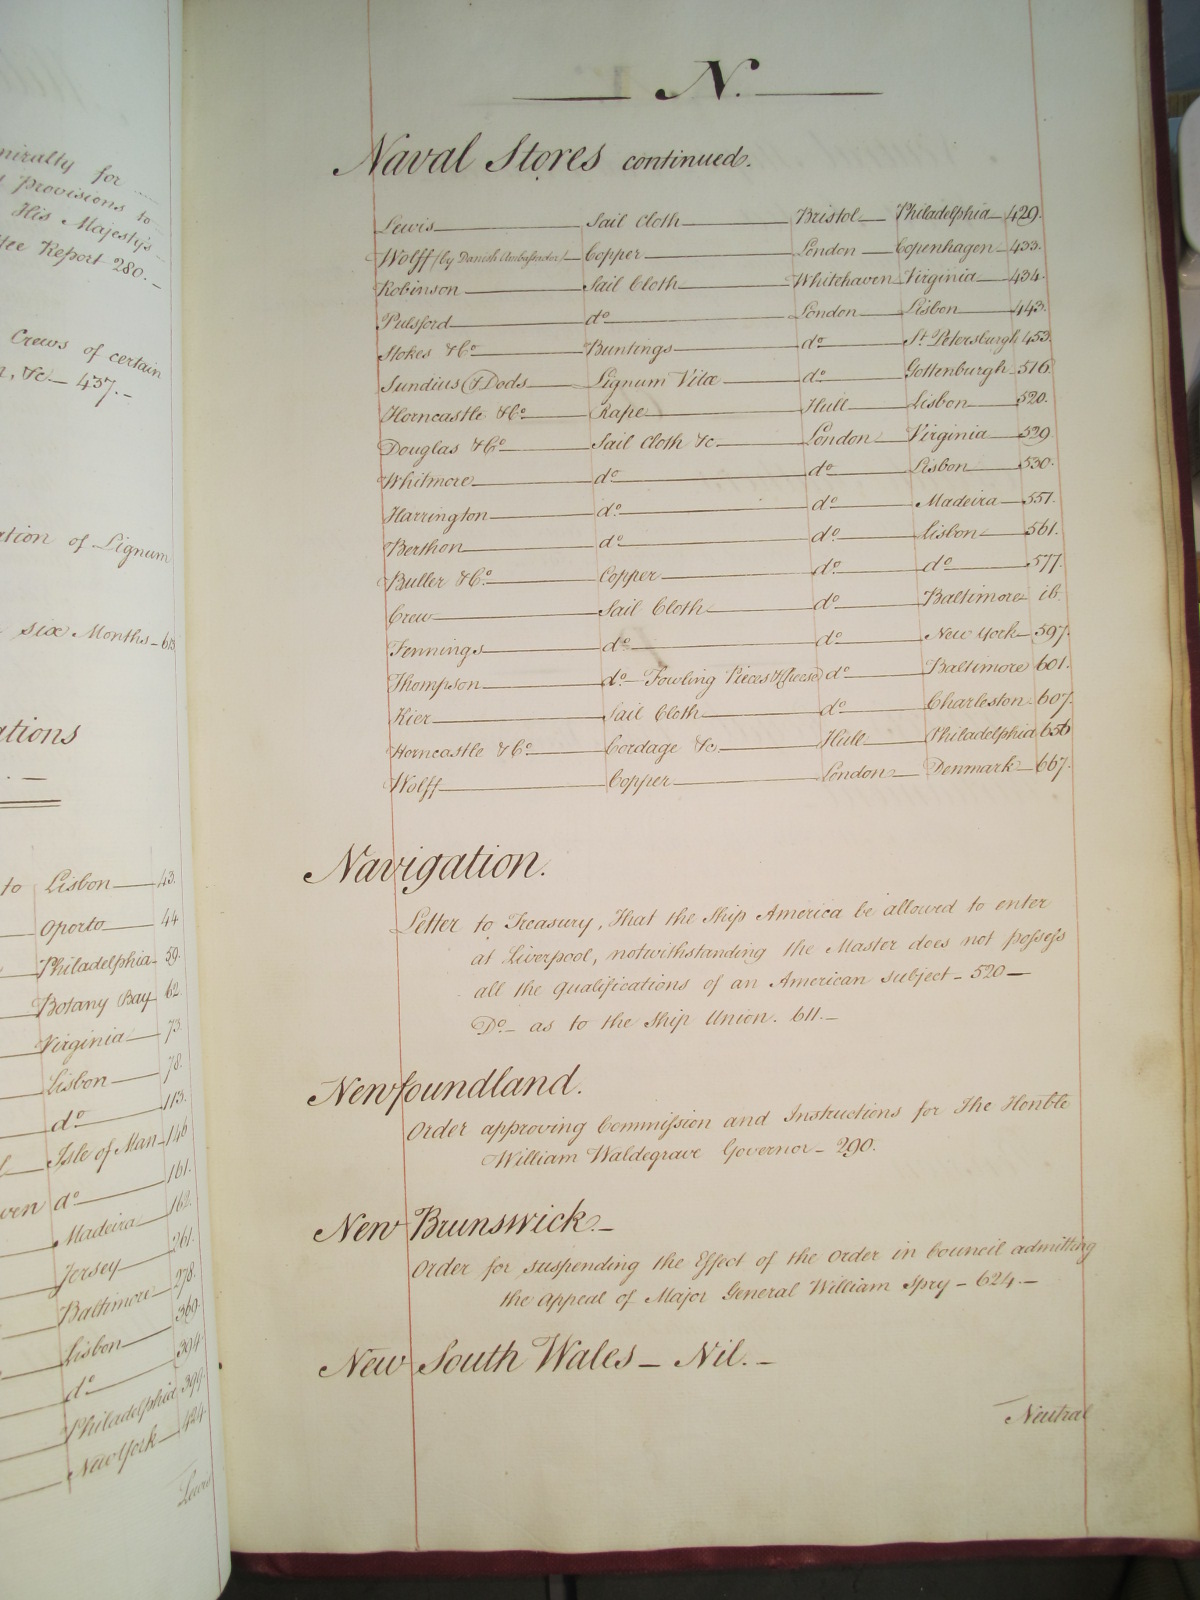 mirally for
Provisions to
His Majesty's
ttee Report 280.
Crews of certain
n, &c - 437.-
ation of Lignum
six Months -
ations
to Lisbon 43.
Oporto 44
Philadelphia 59.
Botany Bay 62
Virginia 73.
Lisbon 78.
do 113.
Isle of Man 146
ven do 161.
Madeira 162.
Jersey 261.
Baltimore 278.
Lisbon 369.
do 394.
Philadelphia 399.
New York 424.
Lewis
N.
Naval Stores continued.
Lewis Sail Cloth Bristol Philadelphia 429.
Wolff (by Danish Ambassador) Copper London Copenhagen 433.
Robinson Sail Cloth Whitehaven Virginia 434.
Pulsford do London Lisbon 443.
Stokes & Co. Buntings do St. Petersburgh 453.
Sundius & Dods Lignum Vitæ do Gottenburgh 516
Horncastle & Co. Rape Hull Lisbon 520.
Douglas & Co. Sail Cloth &c London Virginia 529.
Whitmore do do Lisbon 530.
Harrington do do Madeira 551.
Berthon do do Lisbon 561.
Buller & Co. Copper do do 577.
Crew Sail Cloth do Baltimore ib.
Jennings do do New York 597.
Thompson do Fowling Pieces & Cheese do Baltimore 601.
Kier Sail Cloth do Charleston 607.
Horncastle & Co. Cordage &c Hull Philadelphia 656
Wolff Copper London Denmark 667.
Navigation.
Letter to Treasury, That the Ship America be allowed to enter
at Liverpool, notwithstanding the Master does not possess
all the Qualifications of an American Subject - 520 -
Do - as to the Ship Union. 611.-
Newfoundland.
Order approving Commission and Instructions for The Honble
William Waldegrave Governor - 290.
New Brunswick. -
Order for suspending the Effect of the Order in Council admitting
the Appeal of Major General William Spry - 624. -
New South Wales - Nil. -
Neutral